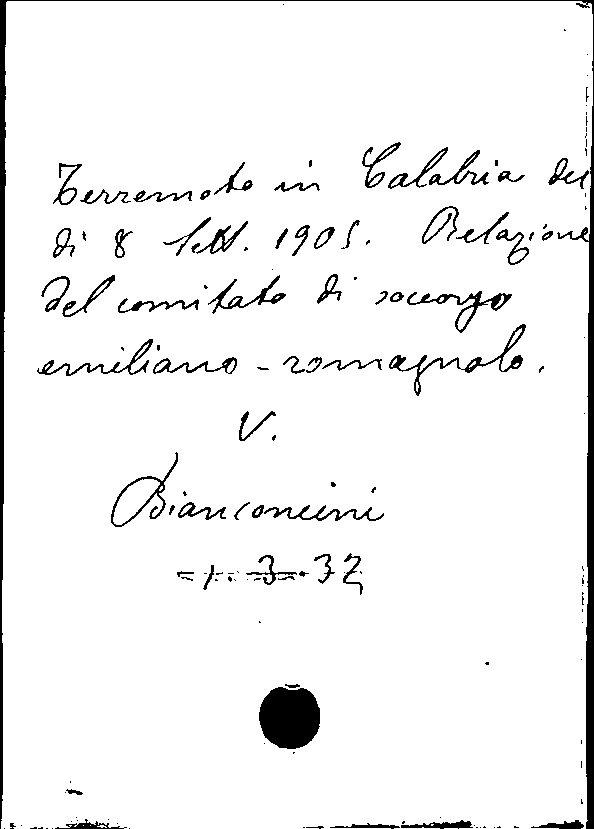 Terremoto in Calabria del
dì 8 Sett. 1905. Relazione
del comitato di soccorso
emiliano-romagnolo.
V.
Bianconcini
1.3.32